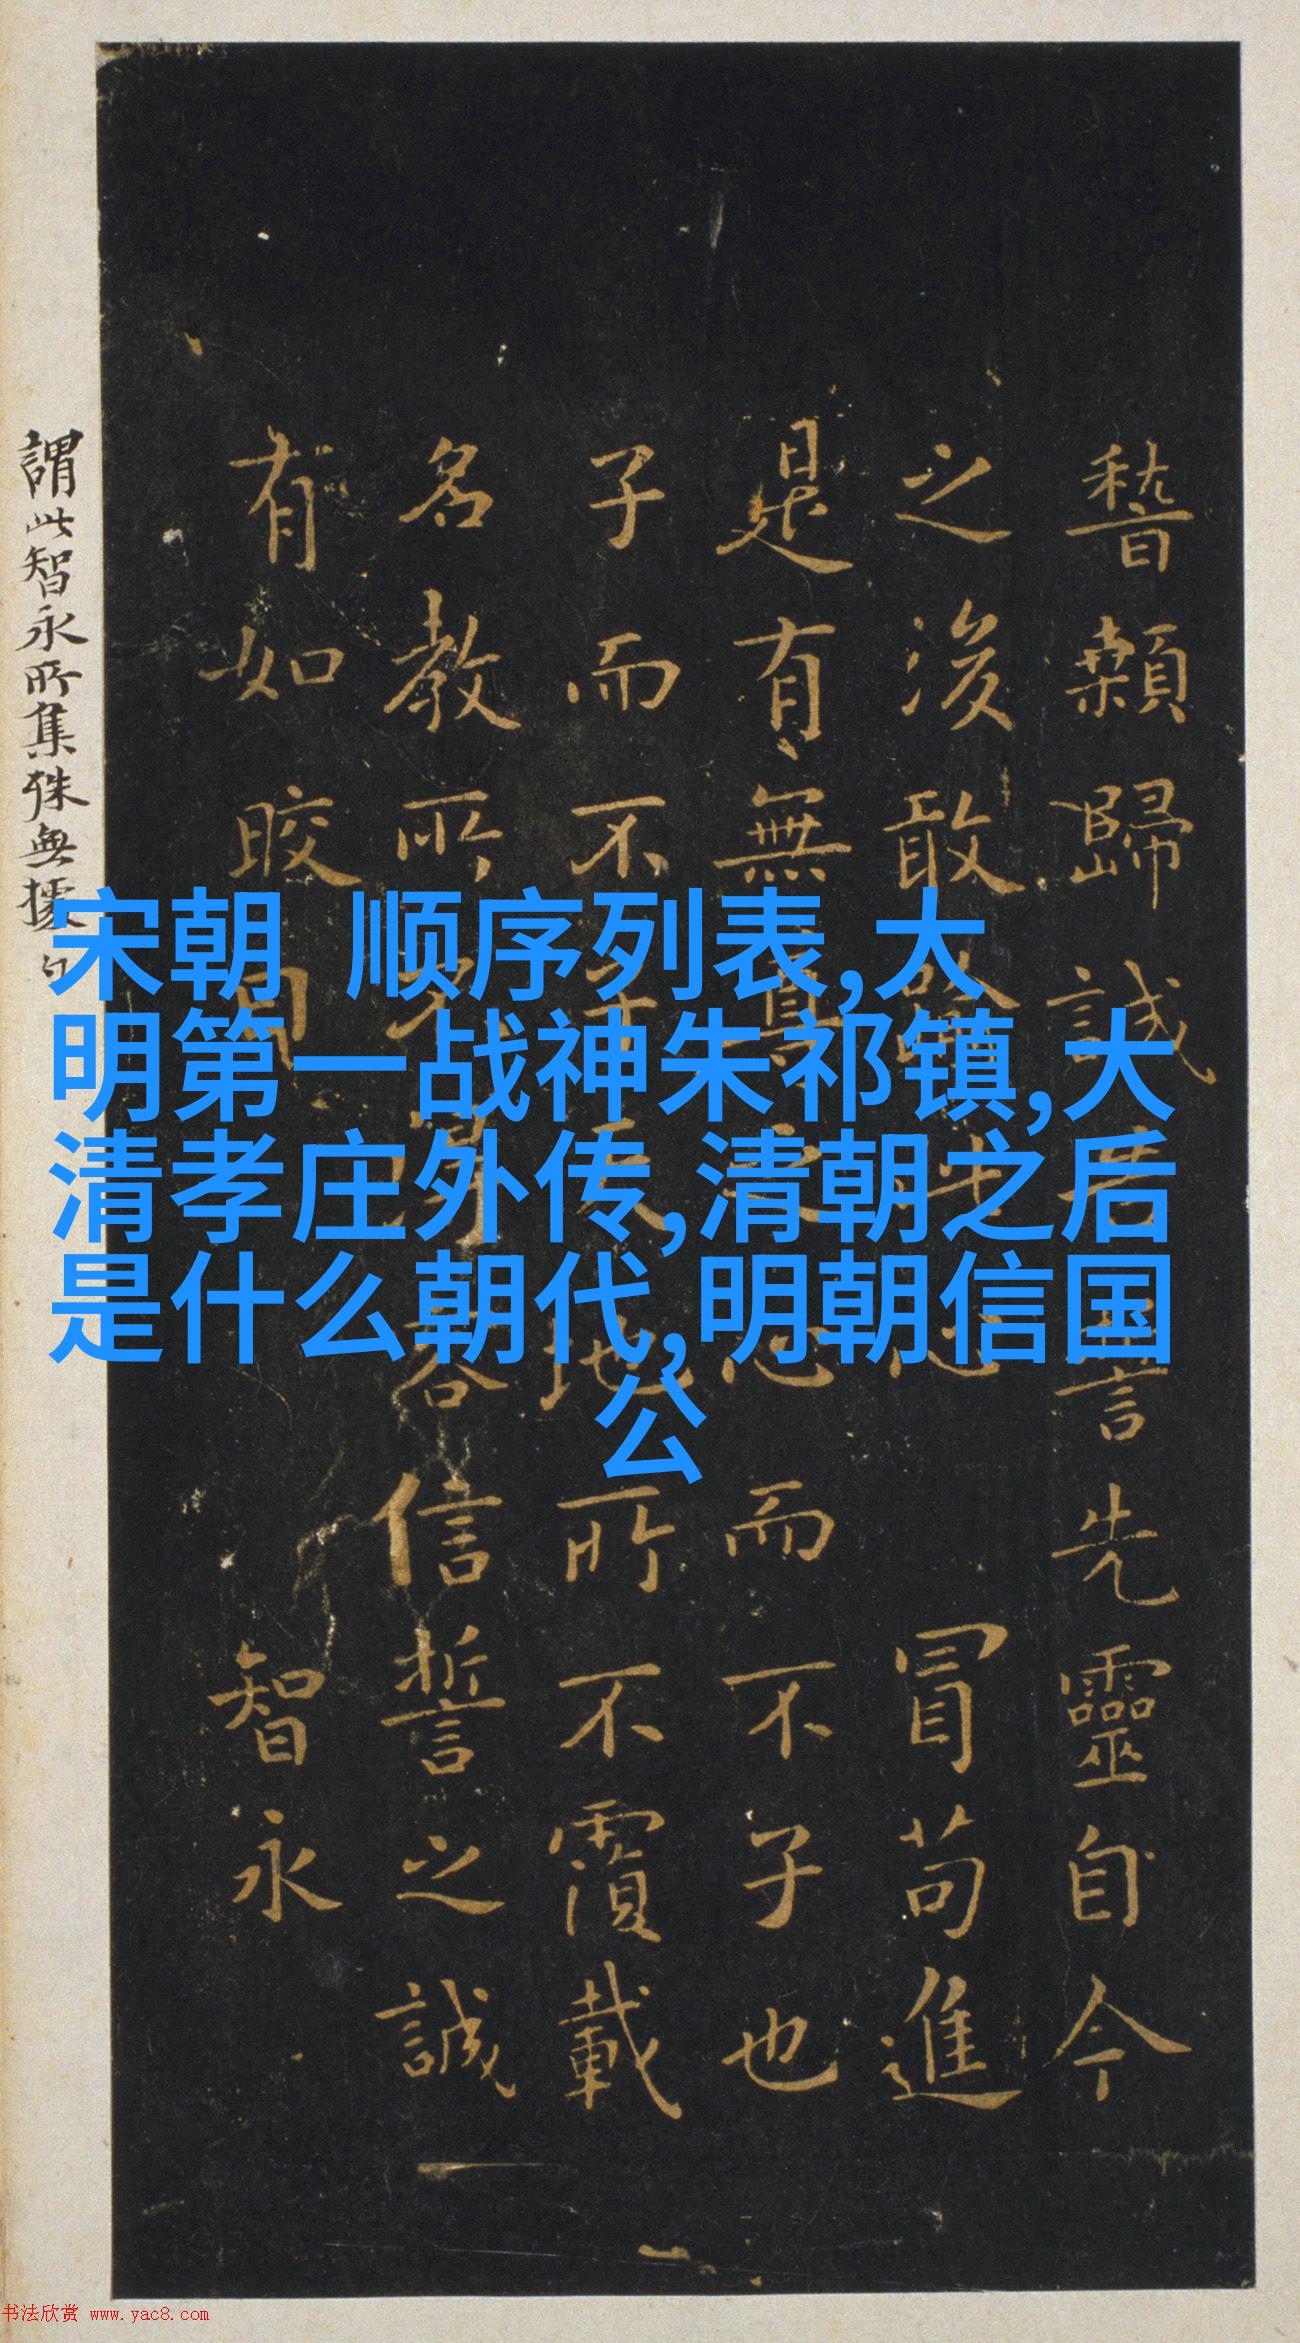 宋朝 顺序列表,大
明第一战神朱祁镇,大
清孝庄外传,清朝之后
是什么朝代,明朝信国
公
稽顙歸誠誓先靈自今
之後敢心冒苟進
是有無尊之心而不子也
子而不子天地所不覆載
名教所不得容信誓之誠
有如皎日 智永
謂此智永所集殊無據
书法欣赏 www.yac8.com